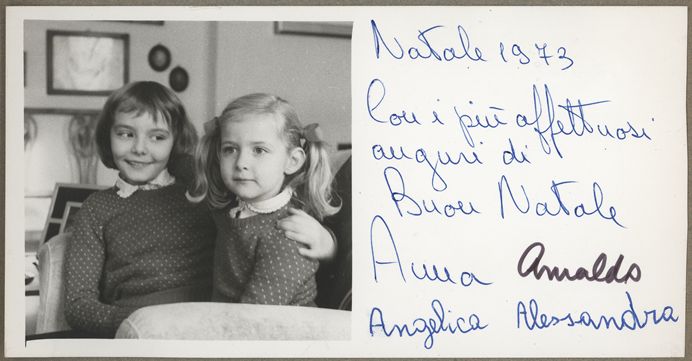 Natale 1973
Con i più affettuosi
auguri di
Buon Natale
Anna Arnaldo
Angelica Alessandra